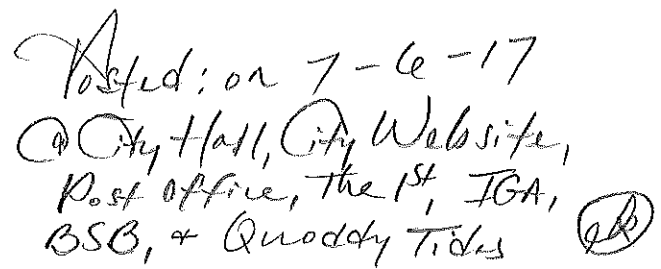 Posted: on 7-6-17
@ City Hall, City Website,
Post Office, The 1st, IGA,
BSB, & Quoddy Tides